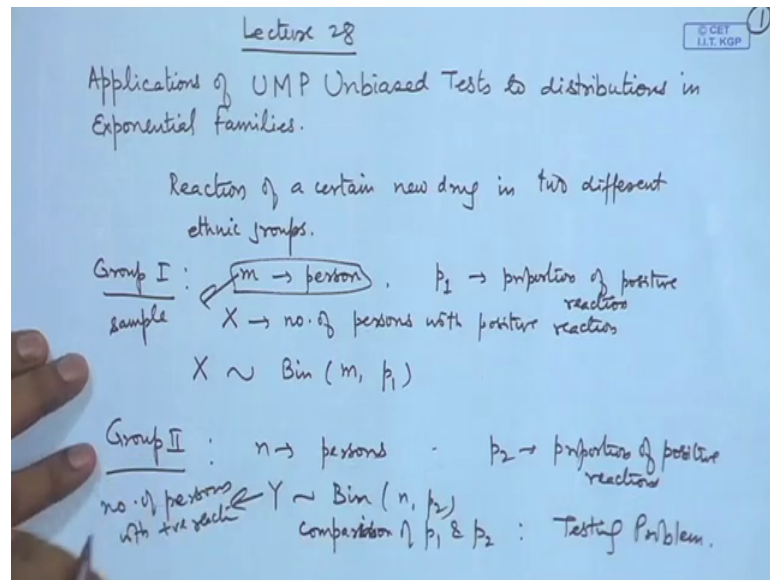 Lecture 28
1
© CET
I.I.T. KGP
Applications of UMP Unbiased Tests to distributions in
Exponential Families.
Reaction of a certain new drug in two different
ethnic groups.
Group I : m → person . p₁ → proportion of positive
reaction
sample X → no. of persons with positive reaction
X ~ Bin ( m, p₁ )
Group II : n → persons . p₂ → proportion of positive
reactions
no. of persons ← Y ~ Bin ( n, p₂ )
with +ve reacti comparison of p₁ & p₂ : Testing Problem.